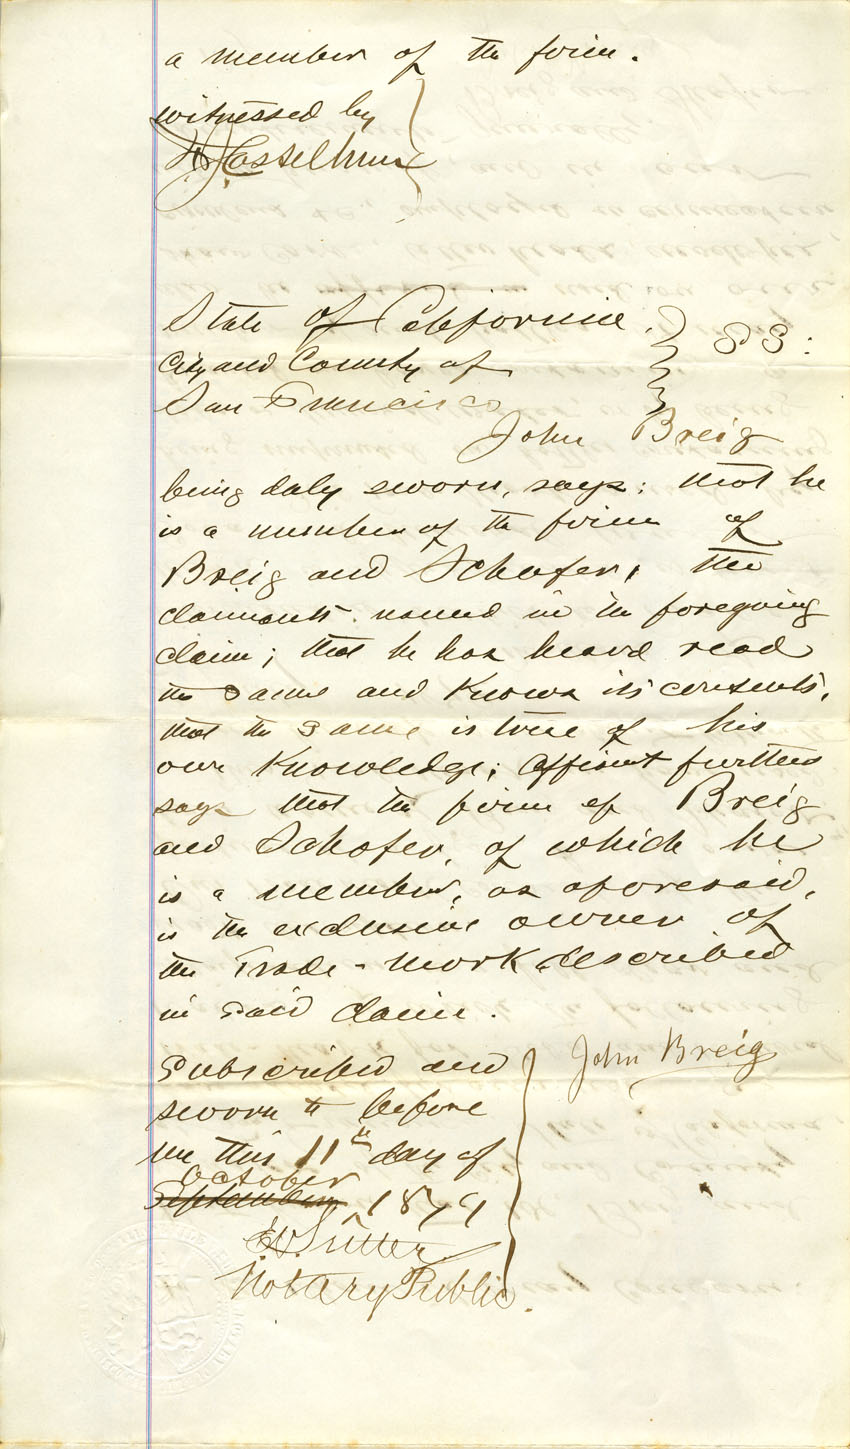 a member of the firm.
witnessed by
State of California. } SS:
City and County of
San Francisco
John Breig
being duly sworn, says: that he
is a member of the firm of
Breig and Schafer, the
claimants named in the foregoing
claim; that he has heard read
the same and knows its contents,
that the same is true of his
own knowledge; affiant further
says that the firm of Breig
and Schafer, of which he
is a member, as aforesaid,
is the exclusive owner of
the Trade-Mark described
in said claim.
John Breig
Subscribed and
sworn to before
me this 11th day of
October
September, 1879
Notary Public.